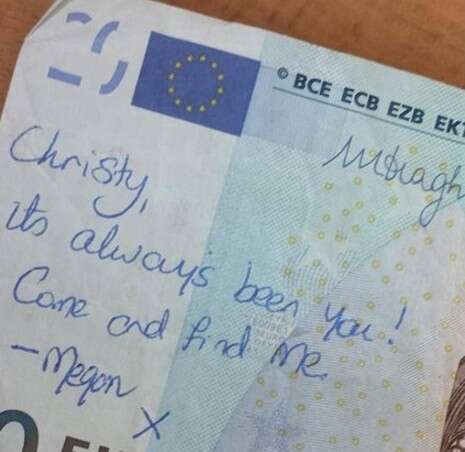 © BCE ECB EZB EKT
Christy,
its always been you!
Come and find me
-Megan
X